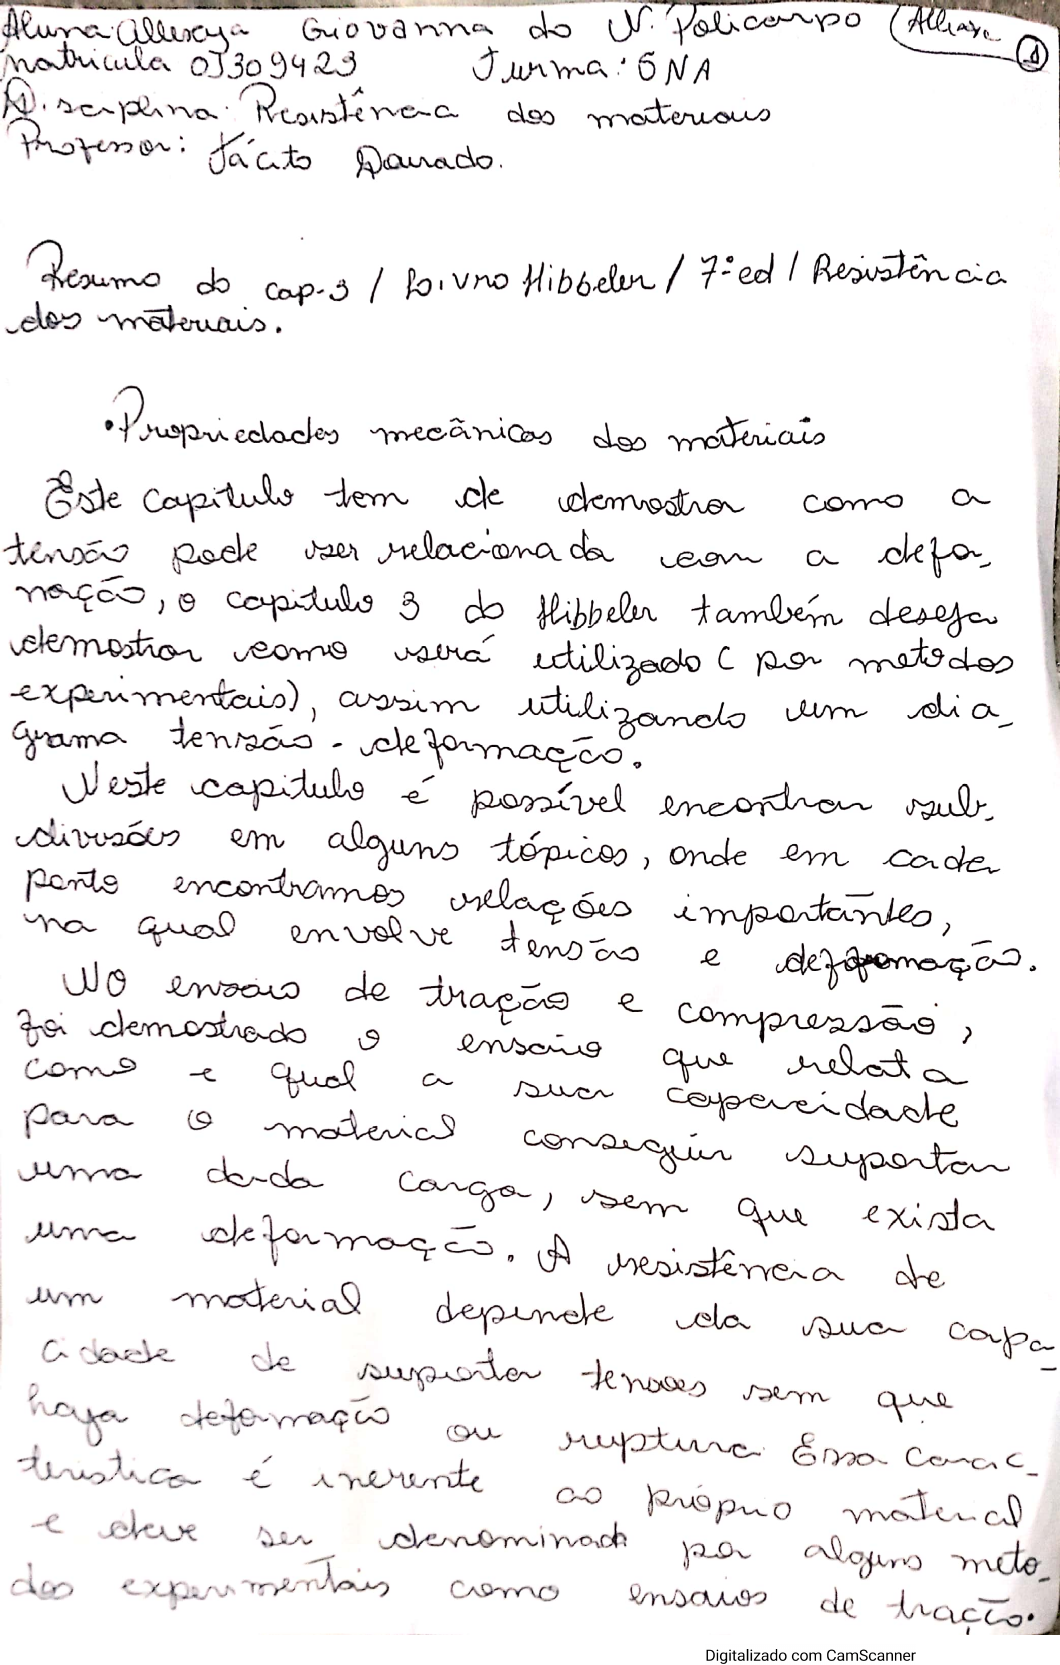 Aluna: Allexya Giovanna do N. Policarpo
1
Matricula 01309429 Turma: 5NA
Disciplina: Resistência dos materiais
Professor: Tácito Dourado.
Resumo do cap-3 / Livro Hibbeler / 7ºed / Resistência
dos materiais.
• Propriedades mecânicas dos materiais
Este capitulo tem de demostrar como a
tensão pode ser relacionada com a defor-
mação, o capitulo 3 do Hibbeler também deseja
demostrar como será utilizado ( por metodos
experimentais), assim utilizando um dia-
grama tensão - deformação.
Neste capitulo é possível encontrar sub-
divisões em alguns tópicos, onde em cada
ponto encontramos relações importantes,
na qual envolve tensão e deformação.
No ensaio de tração e compressão,
foi demostrado o ensaio que relata
como e qual a sua capacidade
para o material conseguir suportar
uma dada carga, sem que exista
uma deformação. A resistência de
um material depende da sua capa-
cidade de suportar tensões sem que
haja deformação ou ruptura. Essa carac-
teristica é inerente ao próprio material
e deve ser denominada por alguns meto-
dos experimentais como ensaios de tração.
Digitalizado com CamScanner